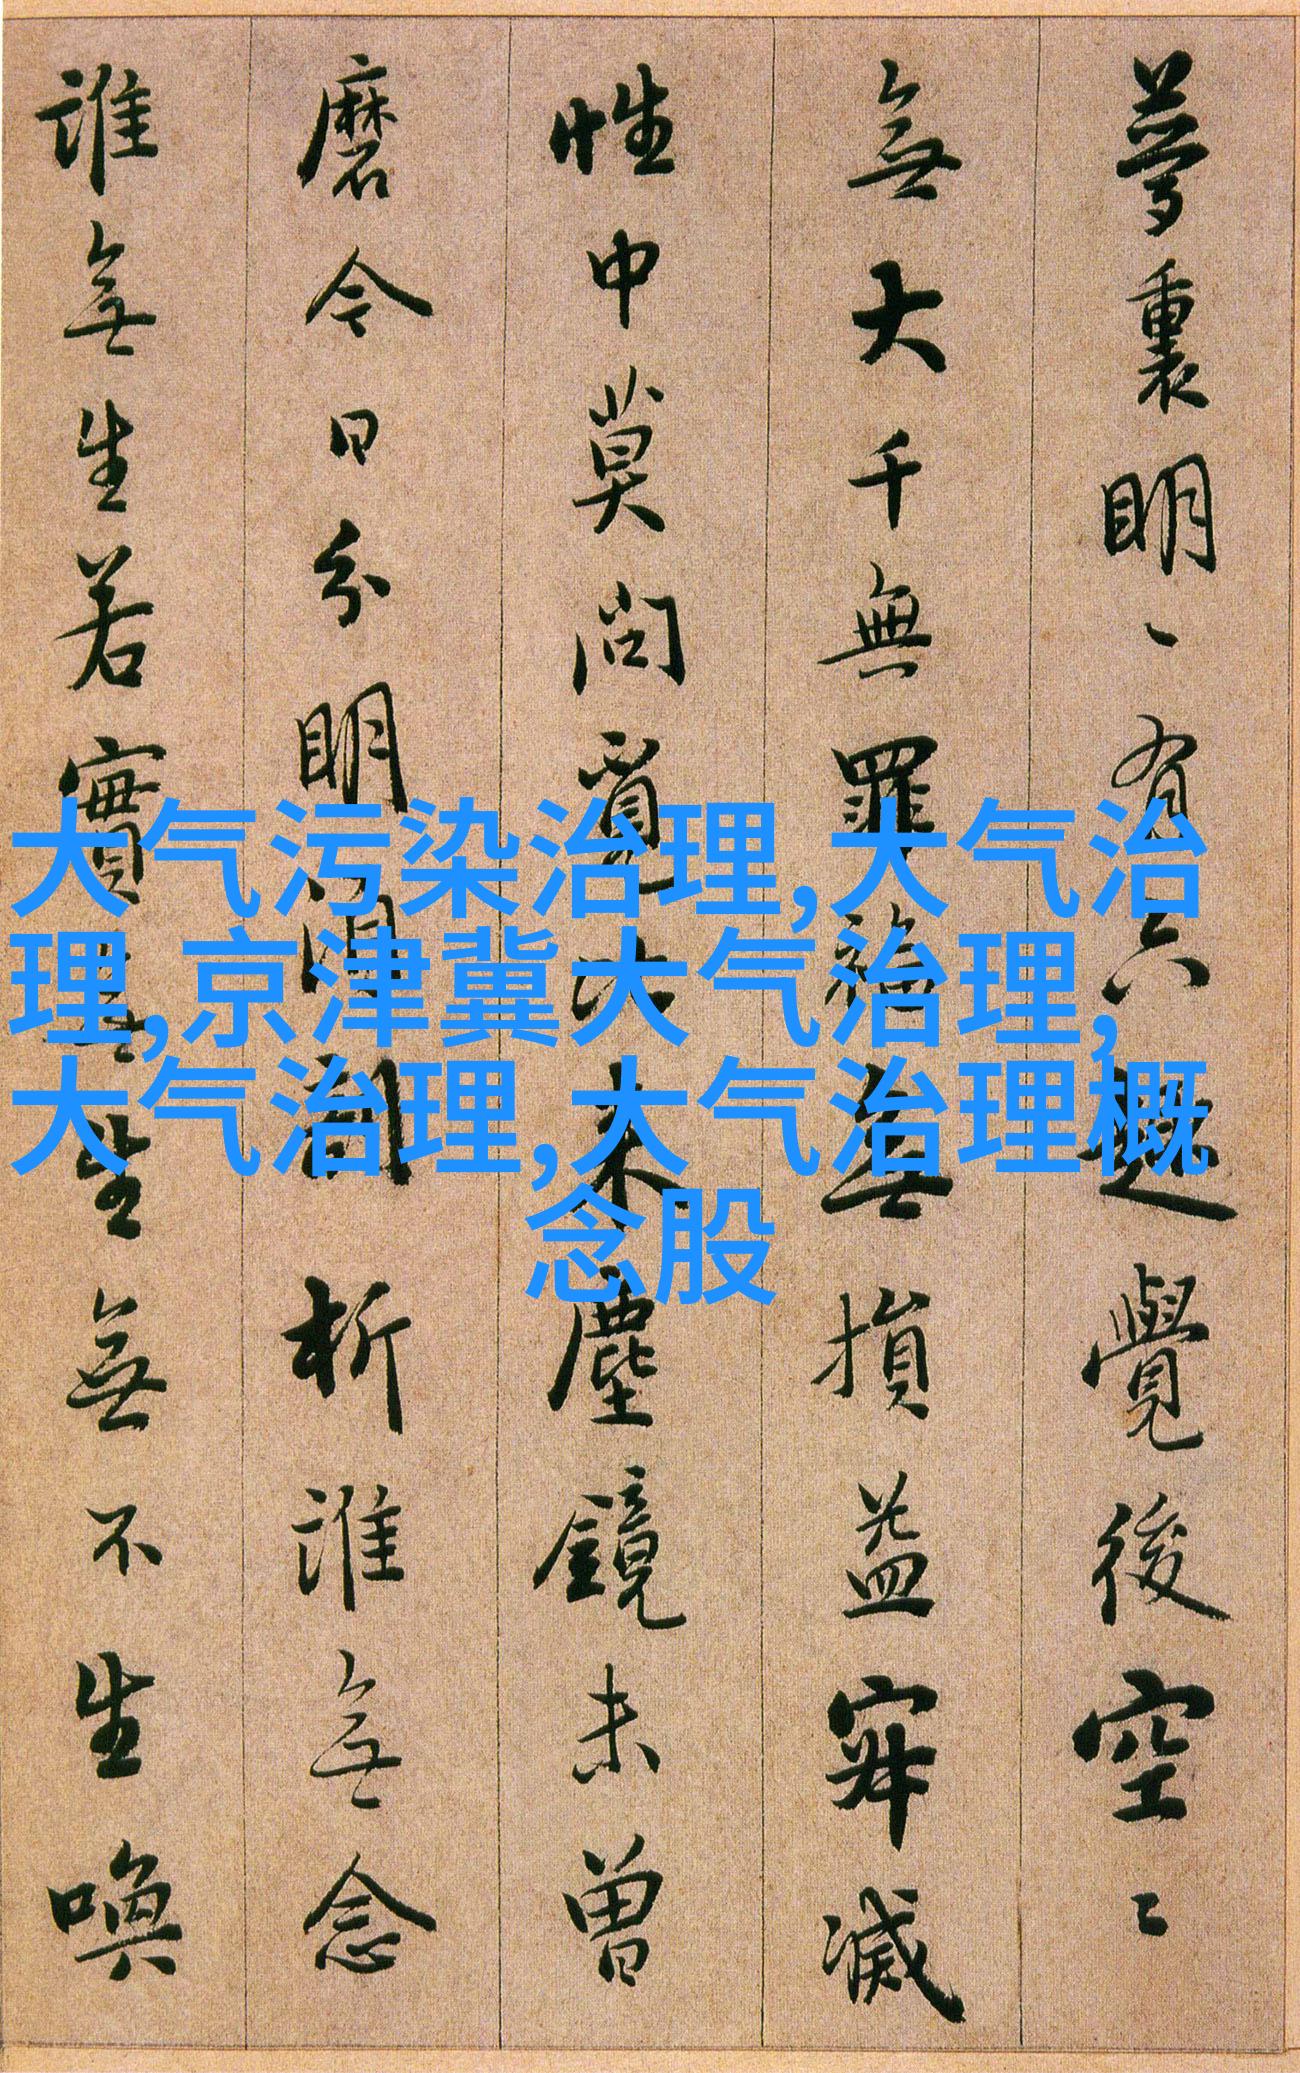 夢裏明〻有六趣覺後空〻
無大千無罪福無損益寂滅
性中莫問覓比来塵鏡未曾
磨今日分明湏剖析誰無念
誰無生若實無生無不生喚
大气污染治理,大气治
理,京津冀大气治理,
大气治理,大气治理概
念股